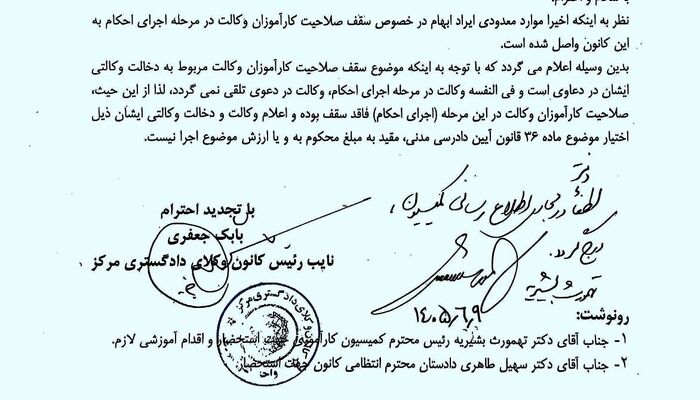 نظر به اینکه اخیرا موارد معدودی ایراد ابهام در خصوص سقف صلاحیت کارآموزان وکالت در مرحله اجرای احکام به
این کانون واصل شده است.
بدین وسیله اعلام می گردد که با توجه به اینکه موضوع سقف صلاحیت کارآموزان وکالت مربوط به دخالت وکالتی
ایشان در دعاوی است و فی النفسه وکالت در مرحله اجرای احکام، وکالت در دعوی تلقی نمی گردد، لذا از این حیث،
صلاحیت کارآموزان وکالت در این مرحله (اجرای احکام) فاقد سقف بوده و اعلام وکالت و دخالت وکالتی ایشان ذیل
اختیار موضوع ماده ۳۶ قانون آیین دادرسی مدنی، مقید به مبلغ محکوم به و یا ارزش موضوع اجرا نیست.
دفتر
لطفا در مجاری اطلاع رسانی کمیسیون،
درج گردد.
تهمورث بشیریه
۱۴۰۵/۶/۹
با تجدید احترام
بابک جعفری
نایب رئیس کانون وکلای دادگستری مرکز
کانون وکلای دادگستری مرکز
رونوشت:
۱- جناب آقای دکتر تهمورث بشیریه رئیس محترم کمیسیون کارآموزی جهت استحضار و اقدام آموزشی لازم.
۲- جناب آقای دکتر سهیل طاهری دادستان محترم انتظامی کانون جهت استحضار.